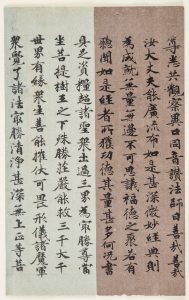 尊者共觀察異口同音讚法師曰善哉善哉
汝大丈夫能廣流布如是甚深微妙經典則
為成就無量無邊不可思議福德之聚若有
聽聞如是經者所獲功德其量甚多何況書
身之資糧超諸聖眾出過三界為最勝尊當
坐菩提樹王之下殊勝莊嚴能救三千大千
世界有緣眾生善能摧伏可畏形儀諸魔軍
眾覺了諸法最勝清淨甚深無上正等菩